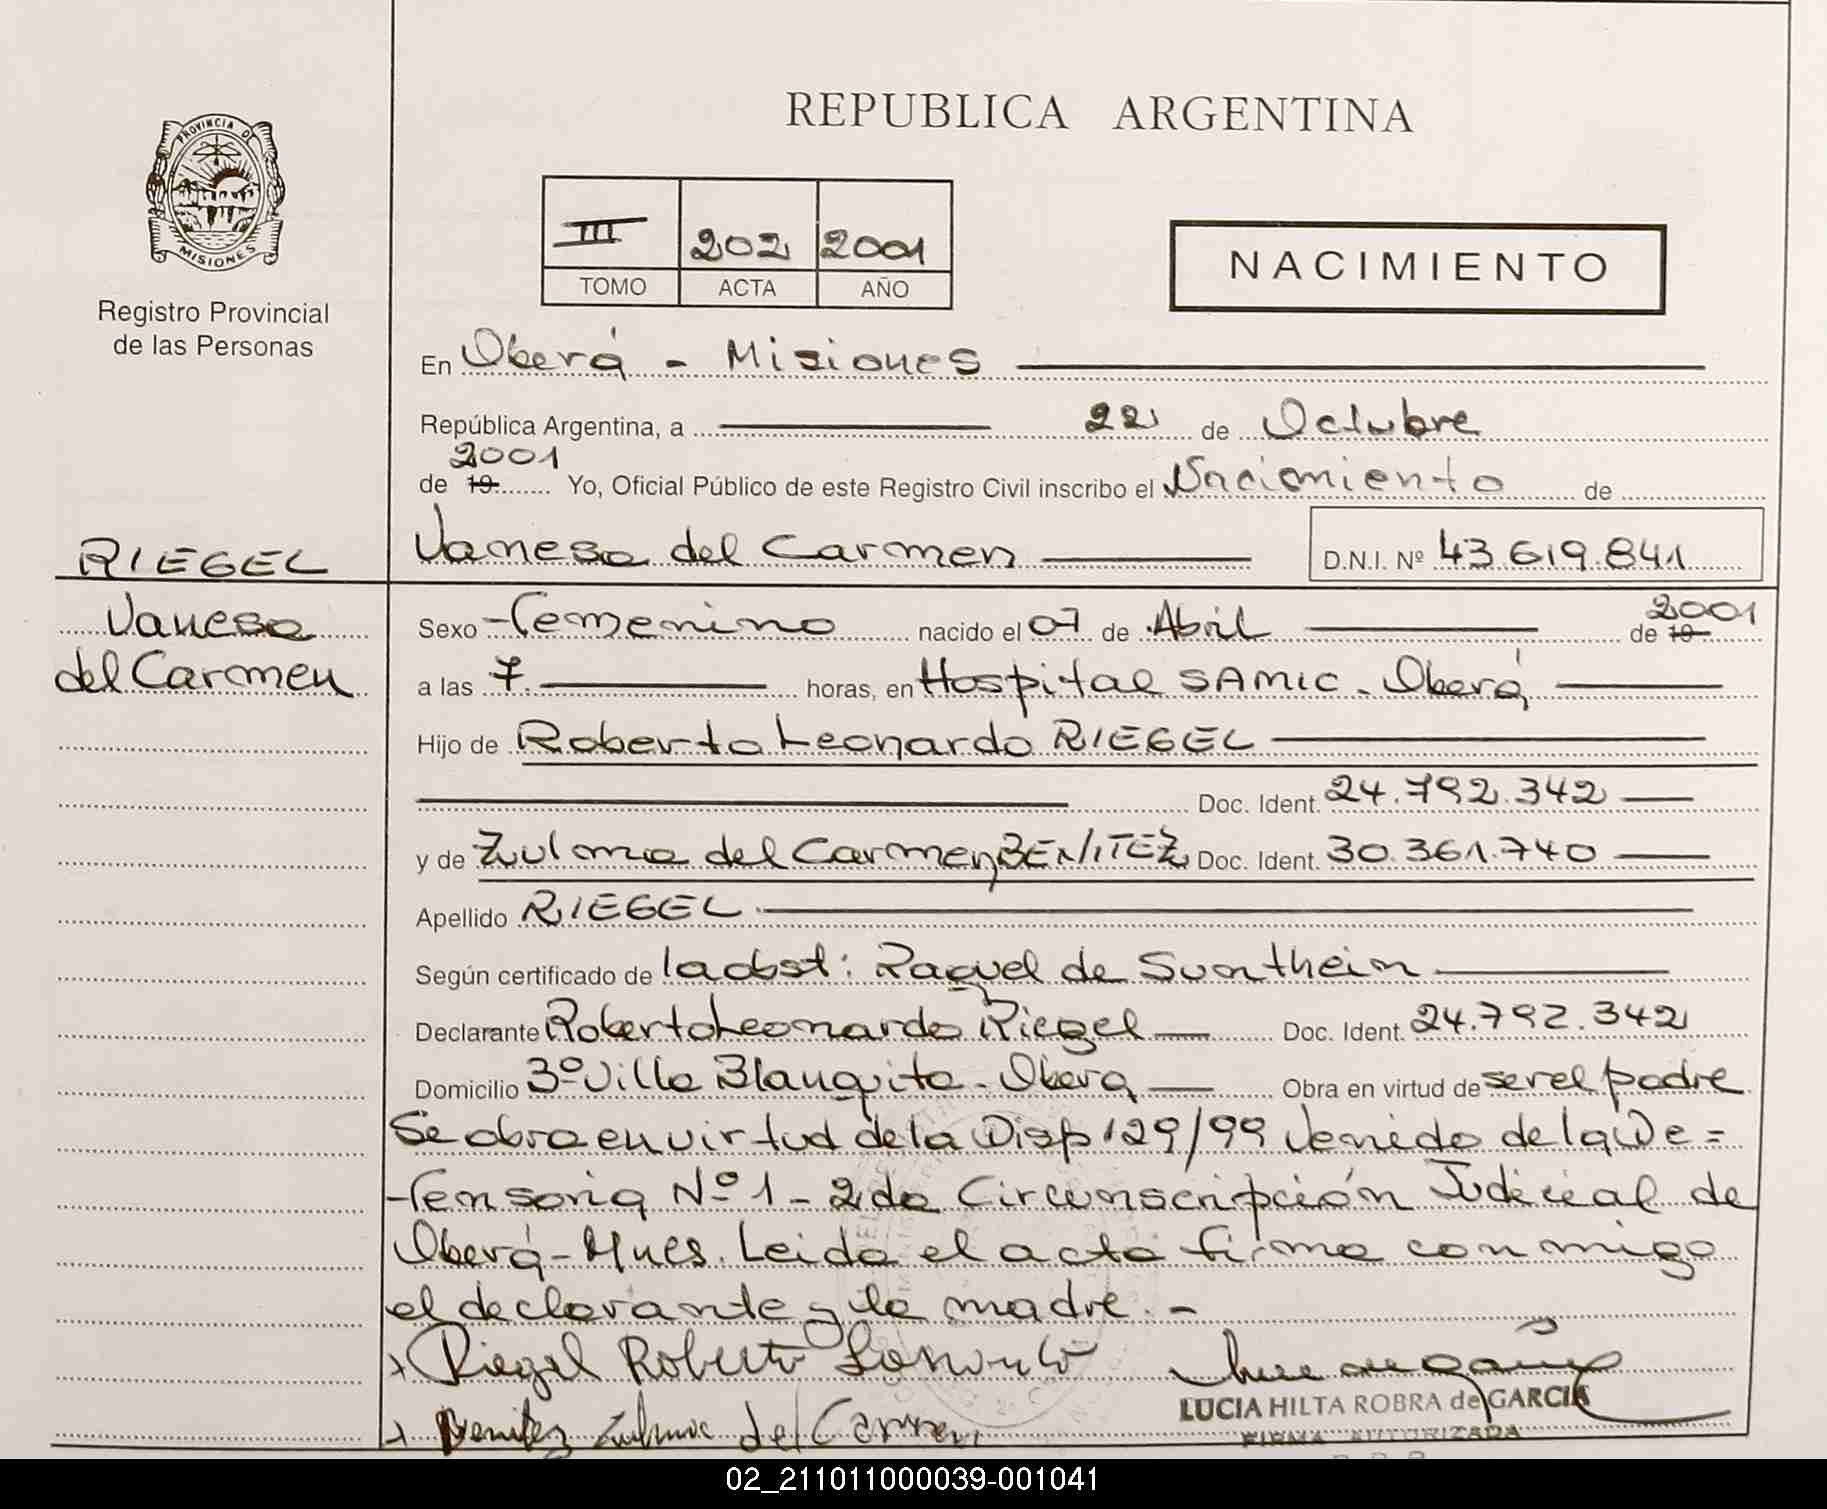 REPUBLICA ARGENTINA
PROVINCIA DE
MISIONES
Registro Provincial
de las Personas
III 202 2001
TOMO ACTA AÑO
NACIMIENTO
En Oberá - Misiones
República Argentina, a 22 de Octubre
2001
de 19 Yo, Oficial Público de este Registro Civil inscribo el Nacimiento de
RIEGEL
Vanesa del Carmen D.N.I. Nº 43.619.841
Vanesa
del Carmen
2001
Sexo Femenino nacido el 07 de Abril de 19
a las 7. horas, en Hospital SAMIC. Oberá
Hijo de Roberto Leonardo RIEGEL
Doc. Ident. 24.792.342
y de Zulma del Carmen BENITEZ Doc. Ident. 30.361.740
Apellido RIEGEL
Según certificado de la obst: Raquel de Sunthein
Declarante Roberto Leonardo Riegel Doc. Ident. 24.792.342
Domicilio 3º Villa Blanquita - Obera Obra en virtud de ser el padre
Se obra en virtud de la Disp 129/99 Venido de la De=
fensoria Nº 1 - 2da Circunscripción Judicial de
Oberá - Mnes. Leida el acta firma conmigo
el declarante y la madre. -
Riegel Roberto Leonardo
Benitez Zulma del Carmen
LUCIA HILTA ROBRA de GARCIA
FIRMA AUTORIZADA
02_211011000039-001041